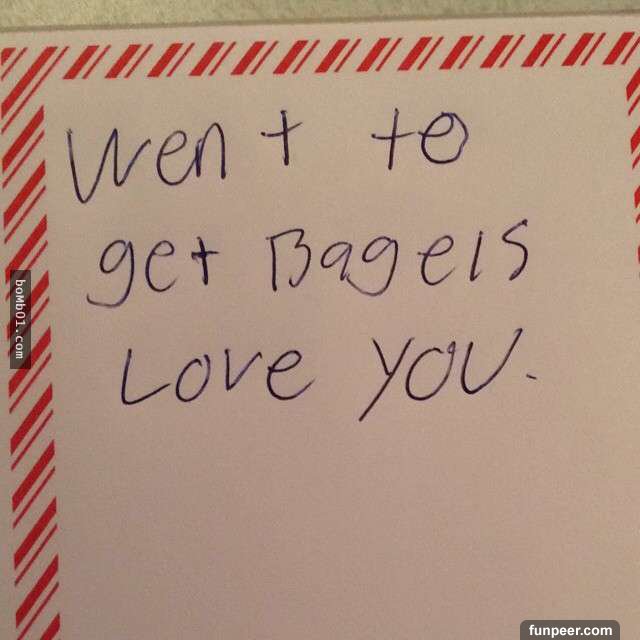 Went to
get Bagels
Love you.
boMb01.com
funpeer.com